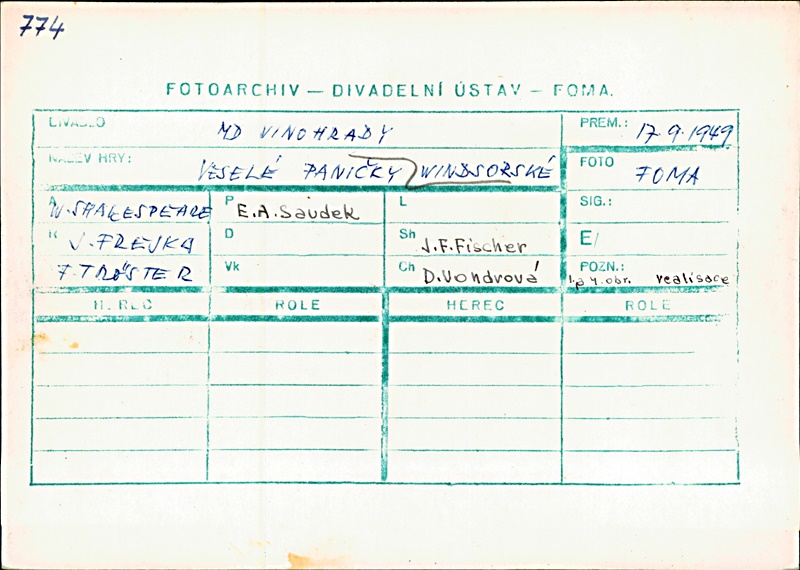 774
FOTOARCHIV — DIVADELNÍ ÚSTAV — FOMA.
DIVADLO MD VINOHRADY PREM.: 17.9.1949
NÁZEV HRY: VESELÉ PANIČKY WINDSORSKÉ FOTO FOMA
A W. SHAKESPEARE P E.A. Saudek L SIG.:
R J. FREJKA D Sh J.F. Fischer E/
F. TRÖSTER Vk Ch D. Vondrová POZN.: 4. obr. realisace
HEREC ROLE HEREC ROLE